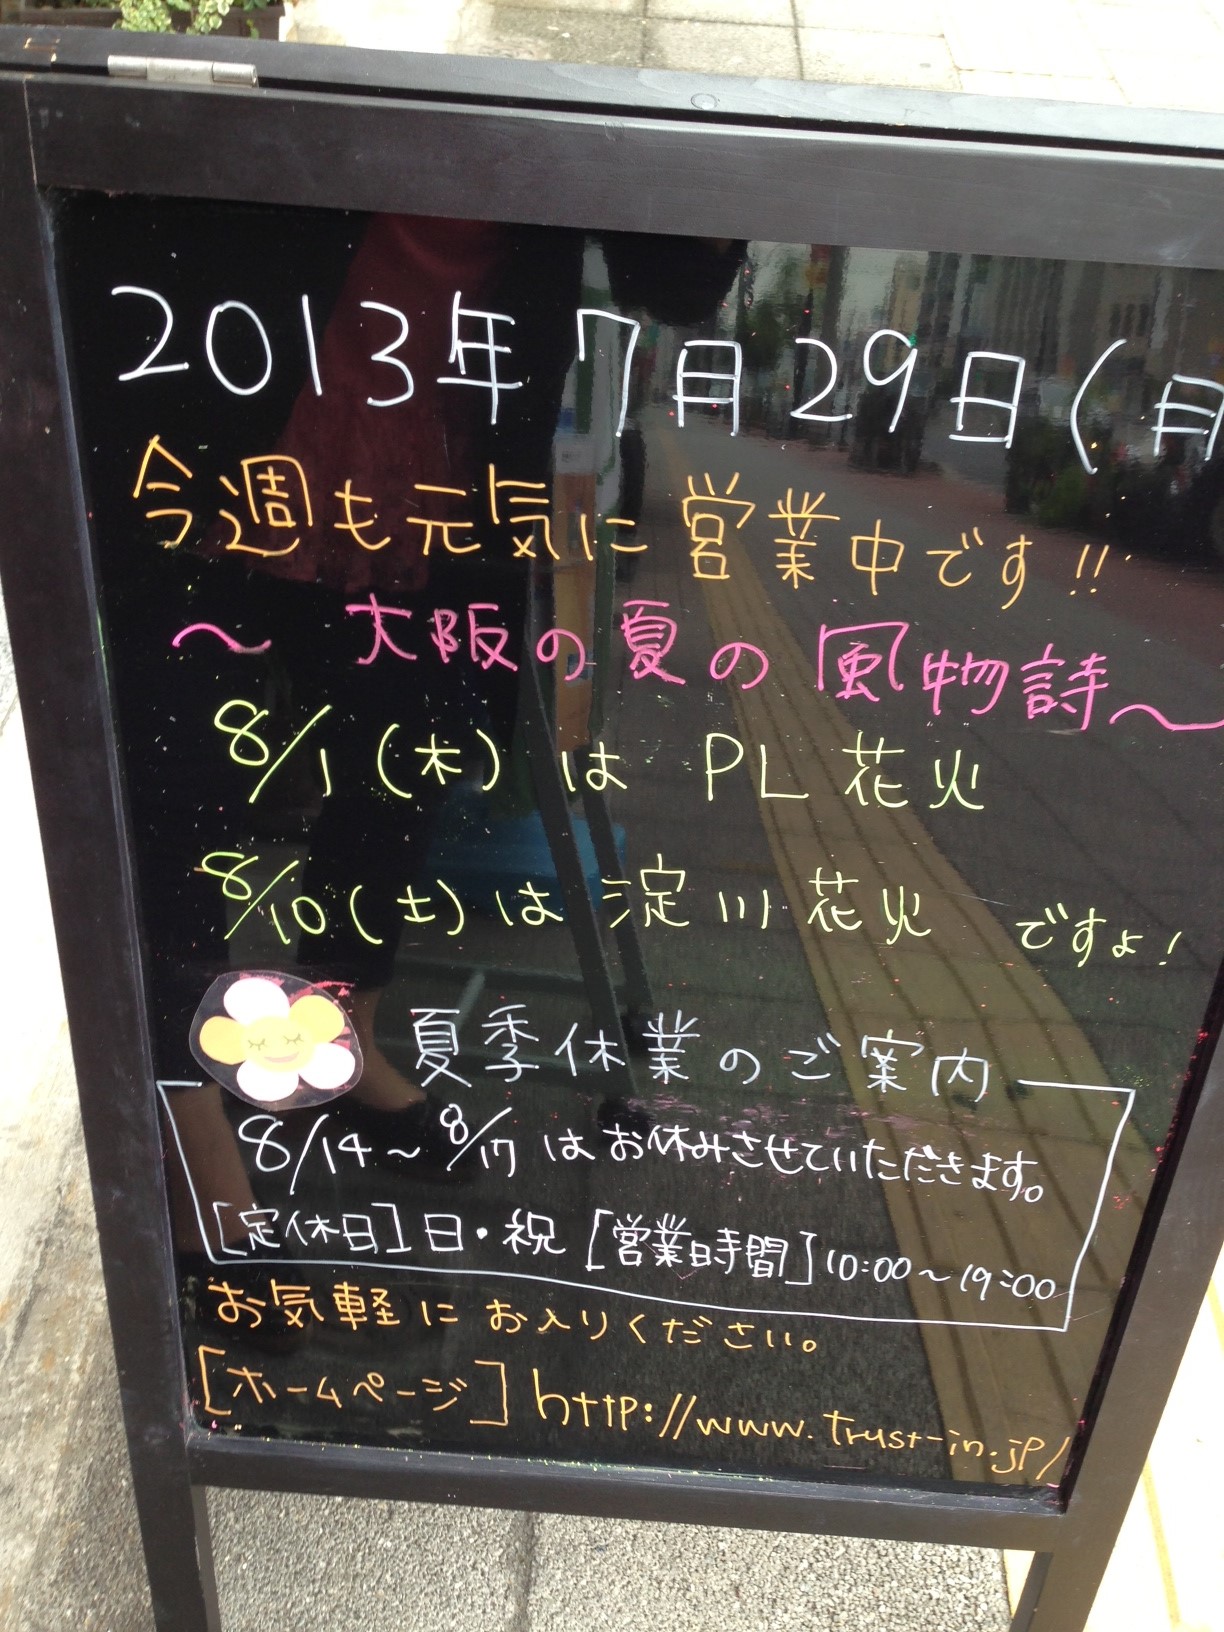 2013年7月29日(月
今週も元気に営業中です!!
～ 大阪の夏の風物詩～
8/1(木)は PL花火
8/10(土)は 淀川花火 ですよ!
夏季休業のご案内
8/14～8/17はお休みさせていただきます。
[定休日]日・祝 [営業時間]10:00～19:00
お気軽にお入りください。
[ホームページ]http://www.trust-in.jp/